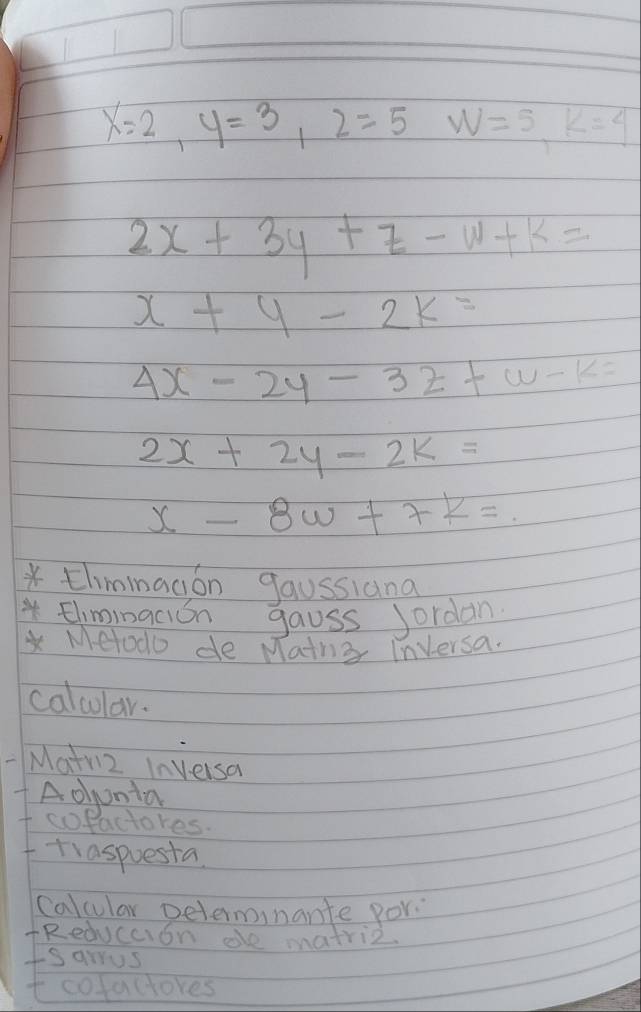 x=2, y=3, z=5 w=5, k=4
2x + 3y + z - w + k =
x + y - 2k =
4x - 2y - 3z + w - k =
2x + 2y - 2k =
x - 8w + 7k =.
* Eliminación gaussiana
* Eliminación gauss Jordan.
* Metodo de Matriz inversa.
calcular.
- Matriz inversa
- Adjunta
- cofactores.
- traspuesta.
Calcular Determinante por:
- Reducción de matriz.
- Sarrus
- cofactores